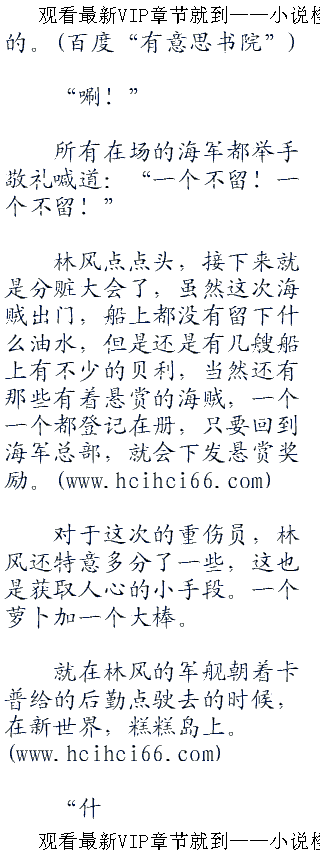 观看最新VIP章节就到——小说
的。(百度“有意思书院”)
“唰！”
所有在场的海军都举手
敬礼喊道：“一个不留！一
个不留！”
林风点点头，接下来就
是分赃大会了，虽然这次海
贼出门，船上都没有留下什
么油水，但是还是有几艘船
上有不少的贝利，当然还有
那些有着悬赏的海贼，一个
一个都登记在册，只要回到
海军总部，就会下发悬赏奖
励。(www.hcihci66.com)
对于这次的重伤员，林
风还特意多分了一些，这也
是获取人心的小手段。一个
萝卜加一个大棒。
就在林风的军舰朝着卡
普给的后勤点驶去的时候，
在新世界，糕糕岛上。
(www.hcihci66.com)
“什
观看最新VIP章节就到——小说